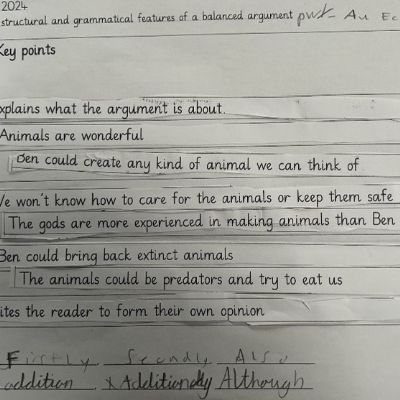 2024
structural and grammatical features of a balanced argument pwt- An Ec
Key points
xplains what the argument is about.
Animals are wonderful
Ben could create any kind of animal we can think of
We won't know how to care for the animals or keep them safe
The gods are more experienced in making animals than Ben
Ben could bring back extinct animals
The animals could be predators and try to eat us
ites the reader to form their own opinion
Firstly Secondly Also
addition x Additionally Although